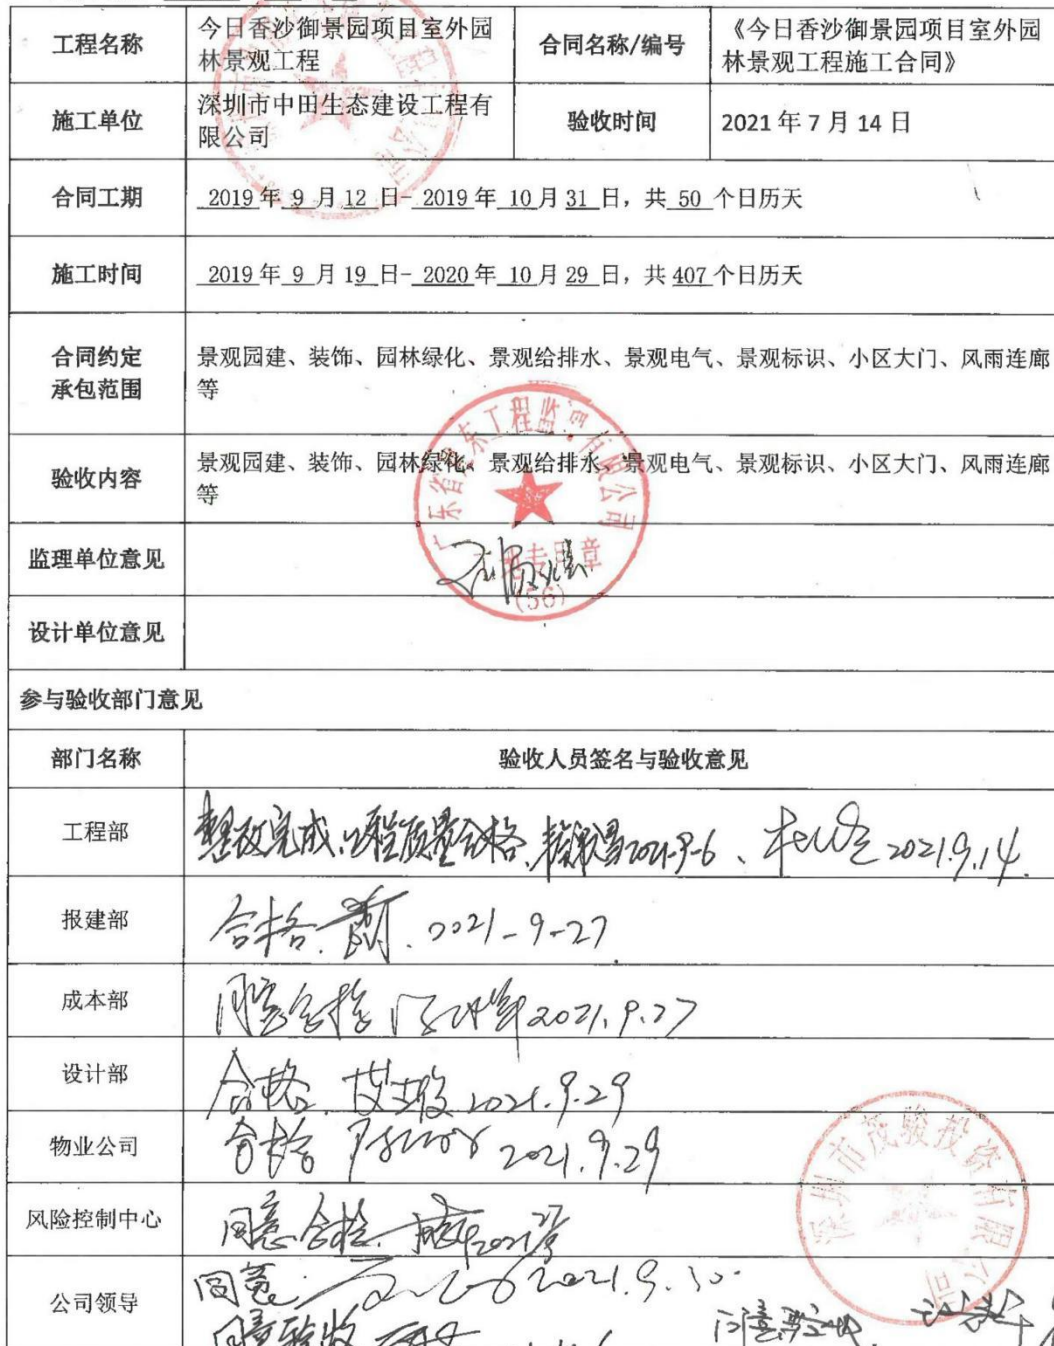 工程名称
今日香沙御景园项目室外园
林景观工程
合同名称/编号
《今日香沙御景园项目室外园
林景观工程施工合同》
施工单位
深圳市中田生态建设工程有
限公司
验收时间
2021年7月14日
合同工期
2019年9月12日-2019年10月31日，共50个日历天
施工时间
2019年9月19日-2020年10月29日，共407个日历天
合同约定
承包范围
景观园建、装饰、园林绿化、景观给排水、景观电气、景观标识、小区大门、风雨连廊
等
验收内容
景观园建、装饰、园林绿化、景观给排水、景观电气、景观标识、小区大门、风雨连廊
等
监理单位意见
专用章
(56)
设计单位意见
参与验收部门意见
部门名称
验收人员签名与验收意见
工程部
整改完成,工程质量合格. 2021-9-6、 2021.9.14.
报建部
合格. 2021-9-27
成本部
同意合格 2021.9.27
设计部
合格. 2021.9.29
物业公司
合格 2021.9.29
风险控制中心
同意合格. 2021
公司领导
同意. 2021.9.30.
同意验收
同意验收
深圳市茂骏投资有限公司